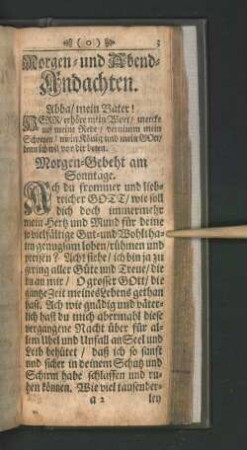 ( 0 ) 3
Morgen- und Abend-
Andachten.
Abba/ mein Vater!
HERR/ erhöre mein Wort/ mercke
auf meine Rede/ vernimm mein
Schreyen/ mein König und mein GOtt/
denn ich wil vor dir beten.
Morgen-Gebeht am
Sonntage.
Ach du frommer und lieb-
reicher GOTT/ wie soll
dich doch immermehr
mein Hertz und Mund für deine
so vielfältige Gut- und Wohltha-
ten gnugsam loben/ rühmen und
preisen? Ach! siehe/ ich bin ja zu
gering aller Güte und Treue/ die
du an mir/ O grosser Gott/ die
gantze Zeit meines Lebens gethan
hast. Ach wie gnädig und vätter-
lich hast du mich abermahl diese
vergangene Nacht über für al-
lem Ubel und Unfall an Seel und
Leib behütet/ daß ich so sanft
und sicher in deinem Schutz und
Schirm habe schlaffen und ru-
hen können. Wie viel tausender-
a 2 ley